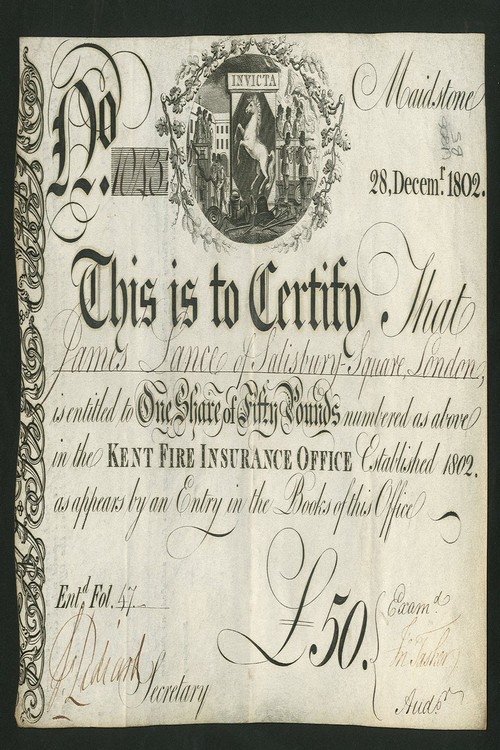 INVICTA
Maidstone
No. 1043
28, Decemr. 1802.
This is to Certify That
James Lance of Salisbury-Square, London,
is entitled to One Share of Fifty Pounds numbered as above
in the KENT FIRE INSURANCE OFFICE Established 1802.
as appears by an Entry in the Books of this Office
Entd. Fol. 47.
£50.
Examd.
Jn Tasker
Secretary
Audor.